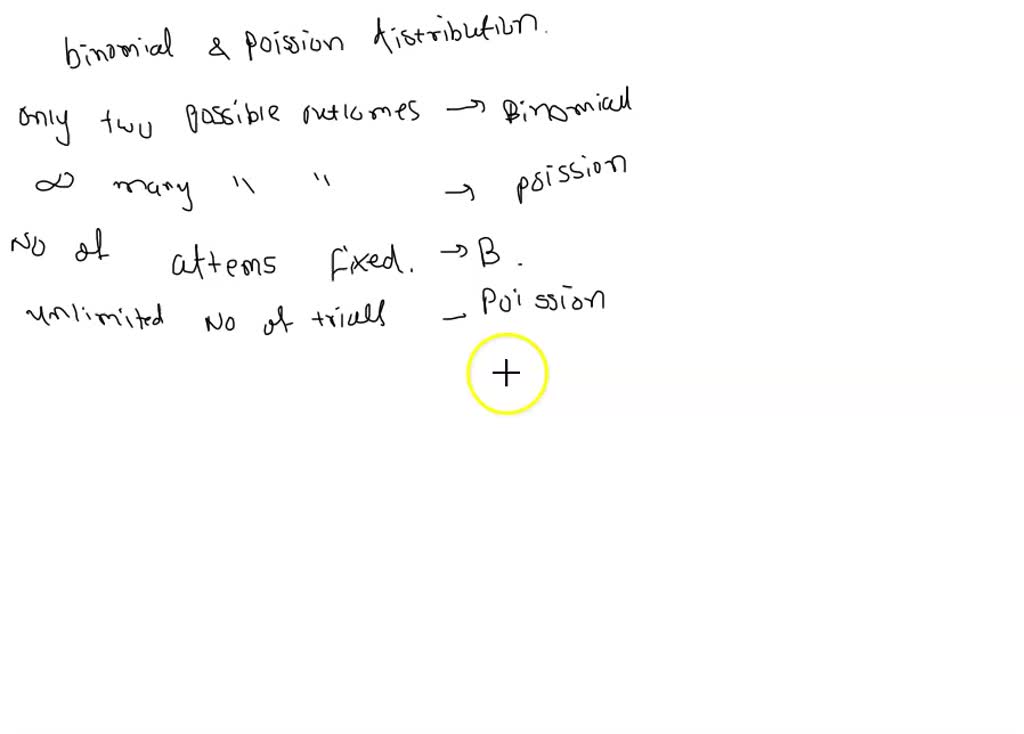 binomial & poission distribution.
only two possible outcomes → Binomial
∞ many " " → poission
No of attems fixed. → B.
unlimited No of trialls - Poission